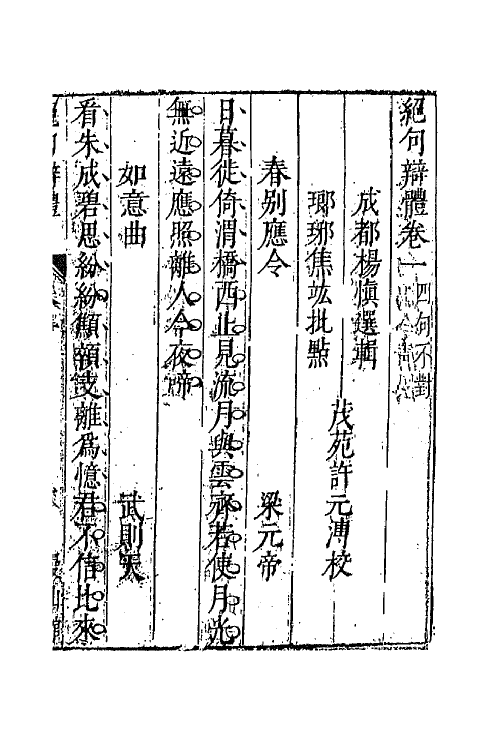 絕句辯體卷一 四句不對
成都楊慎選輯
茂苑許元溥校
瑯琊焦竑批點
春别應令 梁元帝
日暮徙倚渭橋西止見流月與雲齊若使月光
無近遠應照離人今夜啼
如意曲 武則天
看朱成碧思紛紛顦顇支離為憶君不信比來
絕句辯體